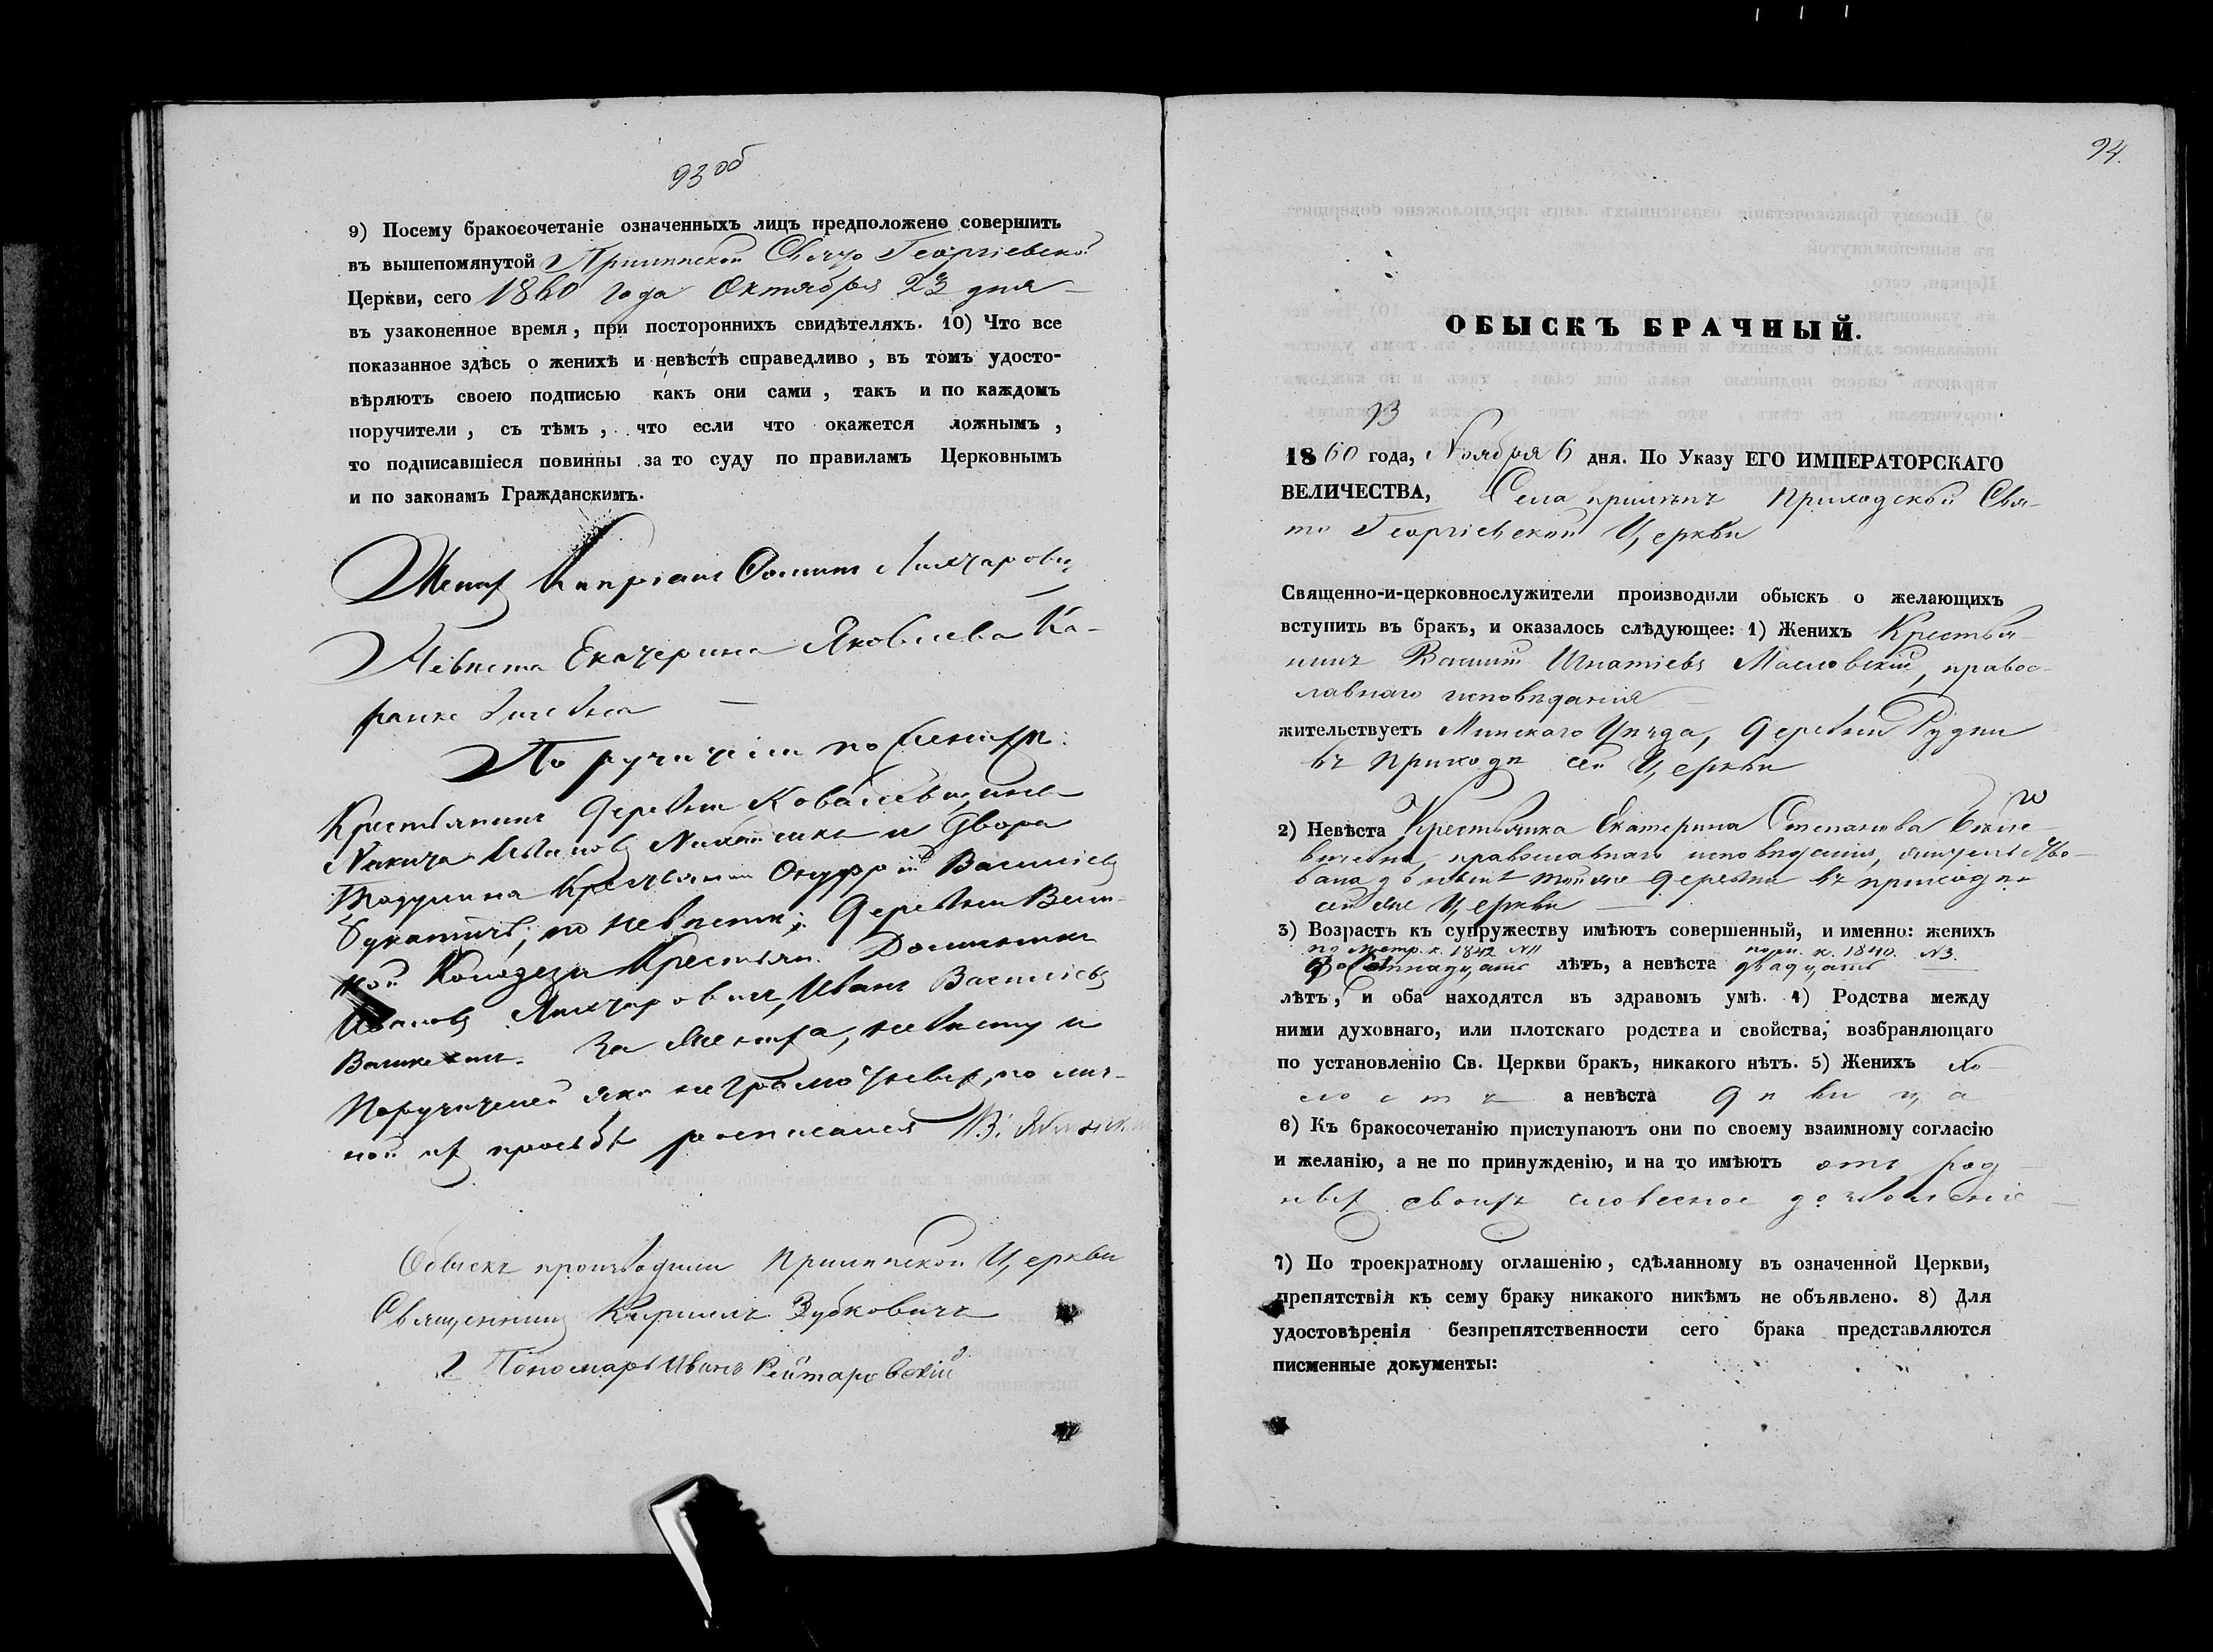 93 об
9) Посему бракосочетаніе означенныхъ лицъ предположено совершить
въ вышепомянутой Прилипской Свято Георгіевской
Церкви, сего 1860 года Октября 23 дня
въ узаконенное время, при постороннихъ свидѣтеляхъ. 10) Что все
показанное здѣсь о женихѣ и невѣстѣ справедливо, въ томъ удосто-
вѣряютъ своею подписью какъ они сами, такъ и по каждомъ
поручители, съ тѣмъ, что если что окажется ложнымъ,
то подписавшіеся повинны за то суду по правиламъ Церковнымъ
и по законамъ Гражданскимъ.
Женихъ Кипріанъ
Невѣста Екатерина Яковлева Ка-
Поручители по женихѣ:
Крестьянинъ деревни
Никита и двора
Крестьянинъ Онуфрій Васильевъ
по невѣстѣ: деревни Вели-
кой Колодези Крестьян. Доминикъ
Ивановъ Иванъ Васильевъ
За жениха, невѣсту и
Поручителей яко неграмотныхъ, по лич-
ной ихъ просьбѣ росписался
Обыскъ производили Прилипской Церкви
Священникъ Кириллъ Зубковичъ
Пономарь Иванъ Рейтаровскій
94.
ОБЫСКЪ БРАЧНЫЙ.
13
1860 года, Ноября 6 дня. По Указу ЕГО ИМПЕРАТОРСКАГО
ВЕЛИЧЕСТВА, Села Прилѣпъ приходской Свя-
то Георгіевской Церкви
Священно-и-церковнослужители производили обыскъ о желающихъ
вступить въ бракъ, и оказалось слѣдующее: 1) Женихъ Крестья-
нинъ Василій Игнатіевъ Масловскій, правос-
лавнаго исповѣданія
жительствуетъ Минскаго Уѣзда, деревни Рудни
въ приходѣ сей Церкви
2) Невѣста Крестьянка Екатерина Степанова
православнаго исповѣданія, жительство-
вала до нынѣ той же деревни въ приходѣ
сей же Церкви
3) Возрастъ къ супружеству имѣютъ совершенный, и именно: женихъ
по метр. к. 1842 №11 по м. к. 1840. №3.
восемнадцать лѣтъ, а невѣста двадцать
лѣтъ, и оба находятся въ здравомъ умѣ. 4) Родства между
ними духовнаго, или плотскаго родства и свойства, возбраняющаго
по установленію Св. Церкви бракъ, никакого нѣтъ. 5) Женихъ хо-
лостъ а невѣста дѣвица
6) Къ бракосочетанію приступаютъ они по своему взаимному согласію
и желанію, а не по принужденію, и на то имѣютъ отъ род
ныхъ своихъ словесное дозволеніе
7) По троекратному оглашенію, сдѣланному въ означенной Церкви,
препятствія къ сему браку никакого никѣмъ не объявлено. 8) Для
удостовѣренія безпрепятственности сего брака представляются
писменные документы: